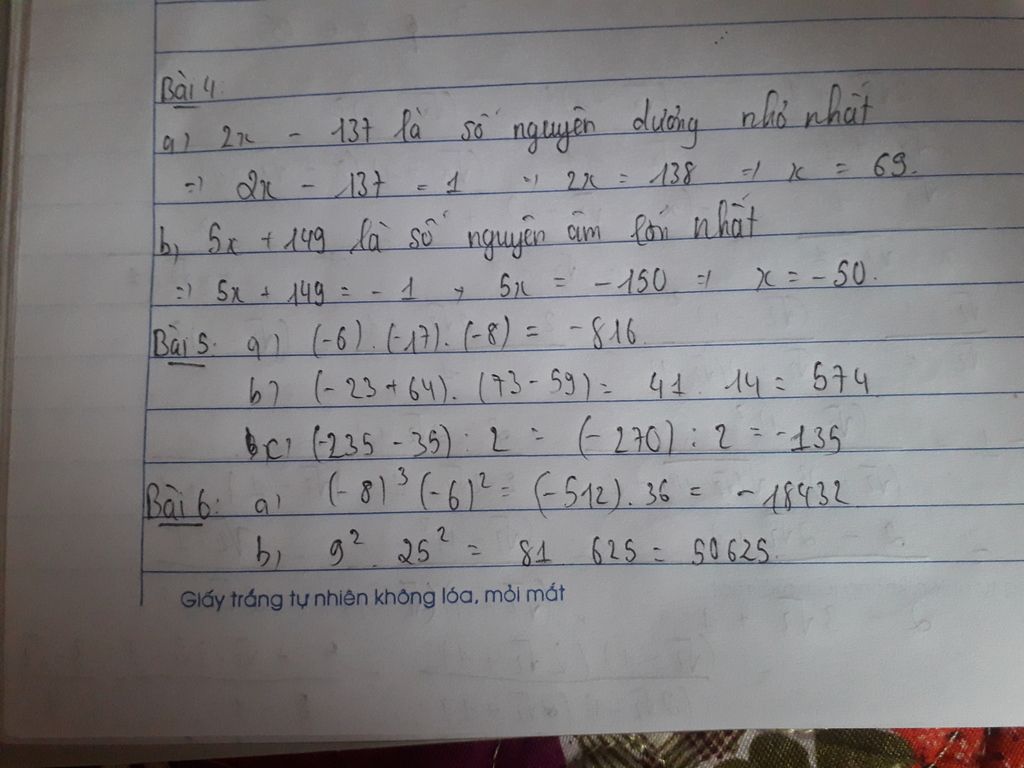 Bài 4:
a) 2x - 137 là số nguyên dương nhỏ nhất
=) 2x - 137 = 1 =) 2x = 138 =) x = 69.
b, 5x + 149 là số nguyên âm lớn nhất
=) 5x + 149 = - 1 , 5x = - 150 =) x = - 50.
Bài 5: a) (-6) . (-17) . (-8) = - 816
b) (- 23 + 64) . (73 - 59) = 41 . 14 = 574
c) (-235 - 35) : 2 = (- 270) : 2 = - 135
Bài 6: a) (- 8)³ (-6)² = (-512) . 36 = - 18432
b, 9² . 25² = 81 625 = 50625
Giấy trắng tự nhiên không lóa, mỏi mắt